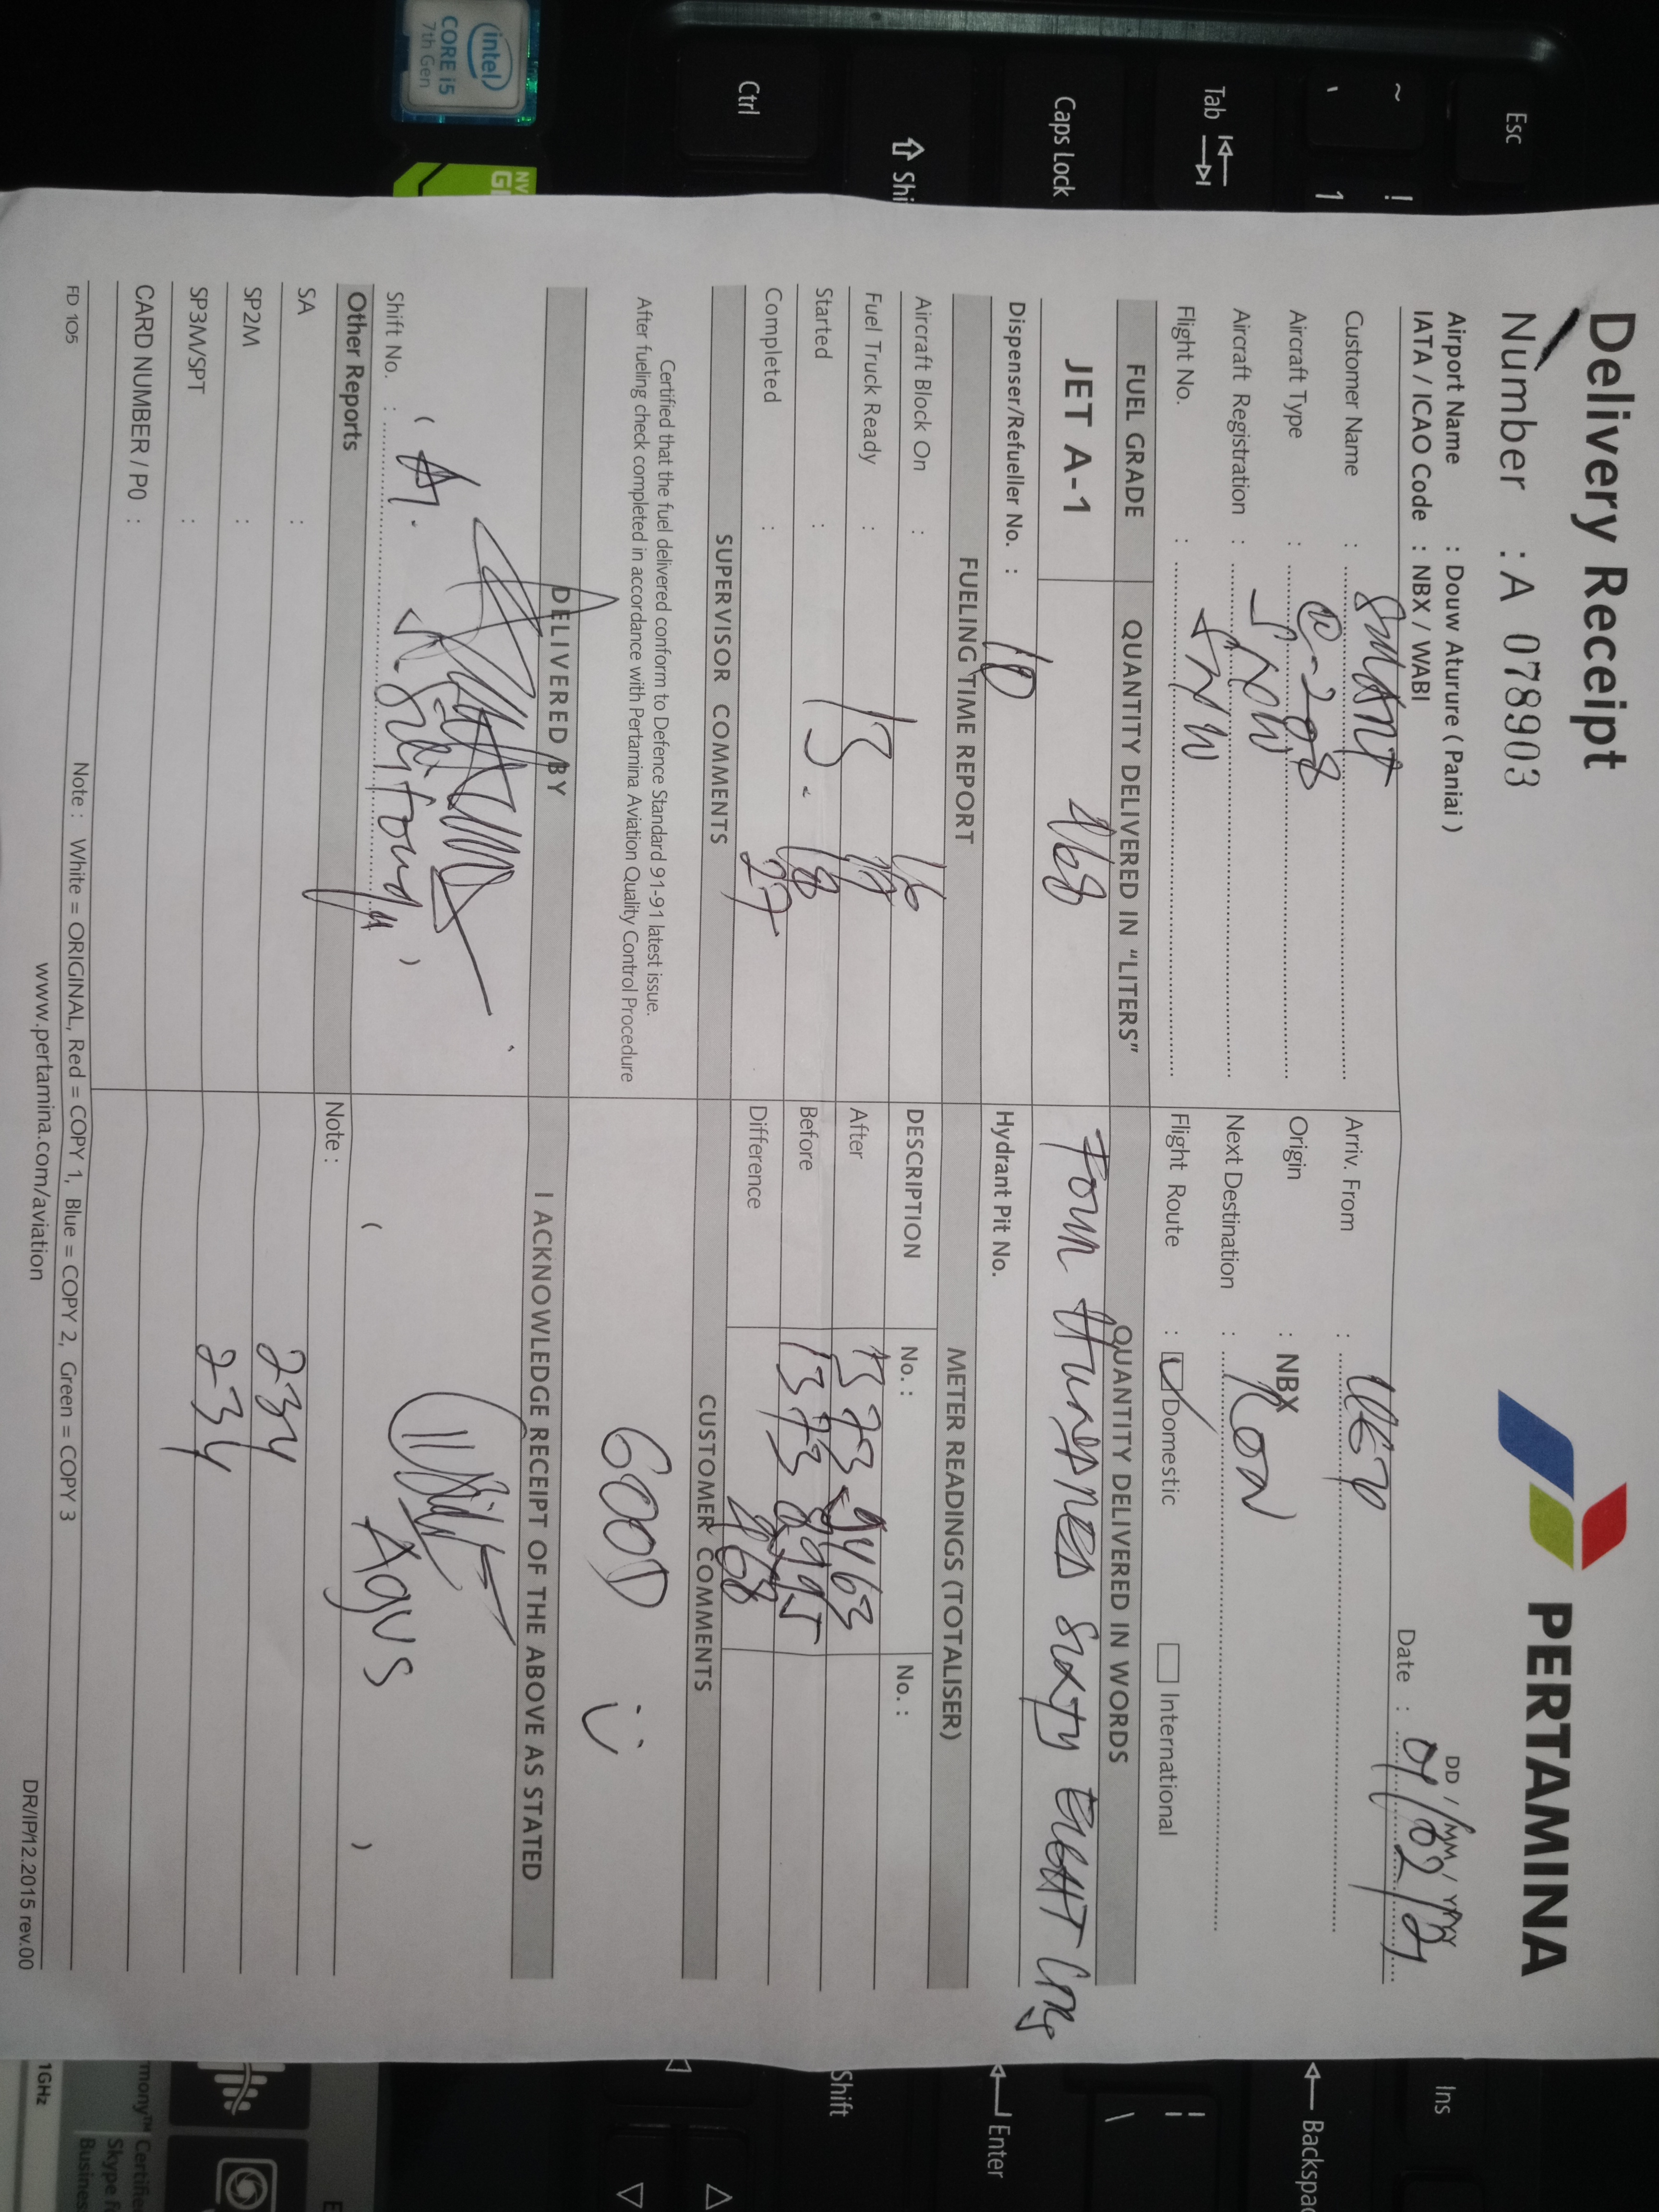 Delivery Receipt
PERTAMINA
Number : A 078903
DD / MM / YYYY
Airport Name : Douw Aturure ( Paniai )
Date : 01/02/21
IATA / ICAO Code : NBX / WABI
Customer Name : SMART
Arriv. From :
Aircraft Type : C-208
Origin : NBX
Aircraft Registration : SNW
Next Destination :
Flight No. : SNW
Flight Route : Domestic International
FUEL GRADE QUANTITY DELIVERED IN "LITERS" QUANTITY DELIVERED IN WORDS
JET A-1 468 Four HUNDRED SIXTY EIGHT
Dispenser/Refueller No. : 10 Hydrant Pit No.
FUELING TIME REPORT METER READINGS (TOTALISER)
Aircraft Block On : 16 DESCRIPTION No. : No. :
Fuel Truck Ready : 13 After 1373.9463
Started : 13. 18 Before 1373 8995
Completed : 27 Difference 468
SUPERVISOR COMMENTS CUSTOMER COMMENTS
Certified that the fuel delivered conform to Defence Standard 91-91 latest issue.
After fueling check completed in accordance with Pertamina Aviation Quality Control Procedure
GOOD
DELIVERED BY I ACKNOWLEDGE RECEIPT OF THE ABOVE AS STATED
Agus
Shift No. : ( ) ( )
Other Reports Note :
SA :
SP2M : 234
SP3M/SPT : 234
CARD NUMBER / P0 :
FD 105
Note : White = ORIGINAL, Red = COPY 1, Blue = COPY 2, Green = COPY 3
www.pertamina.com/aviation
DR/IP/12.2015 rev.00
Esc
~
`
!
1
Tab
Caps Lock
Shi
Ctrl
intel
CORE i5
7th Gen
NV
GE
Ins
Backspa
|
\
Enter
Shift
1GHz
mony™ Certifie
Skype f
Busines